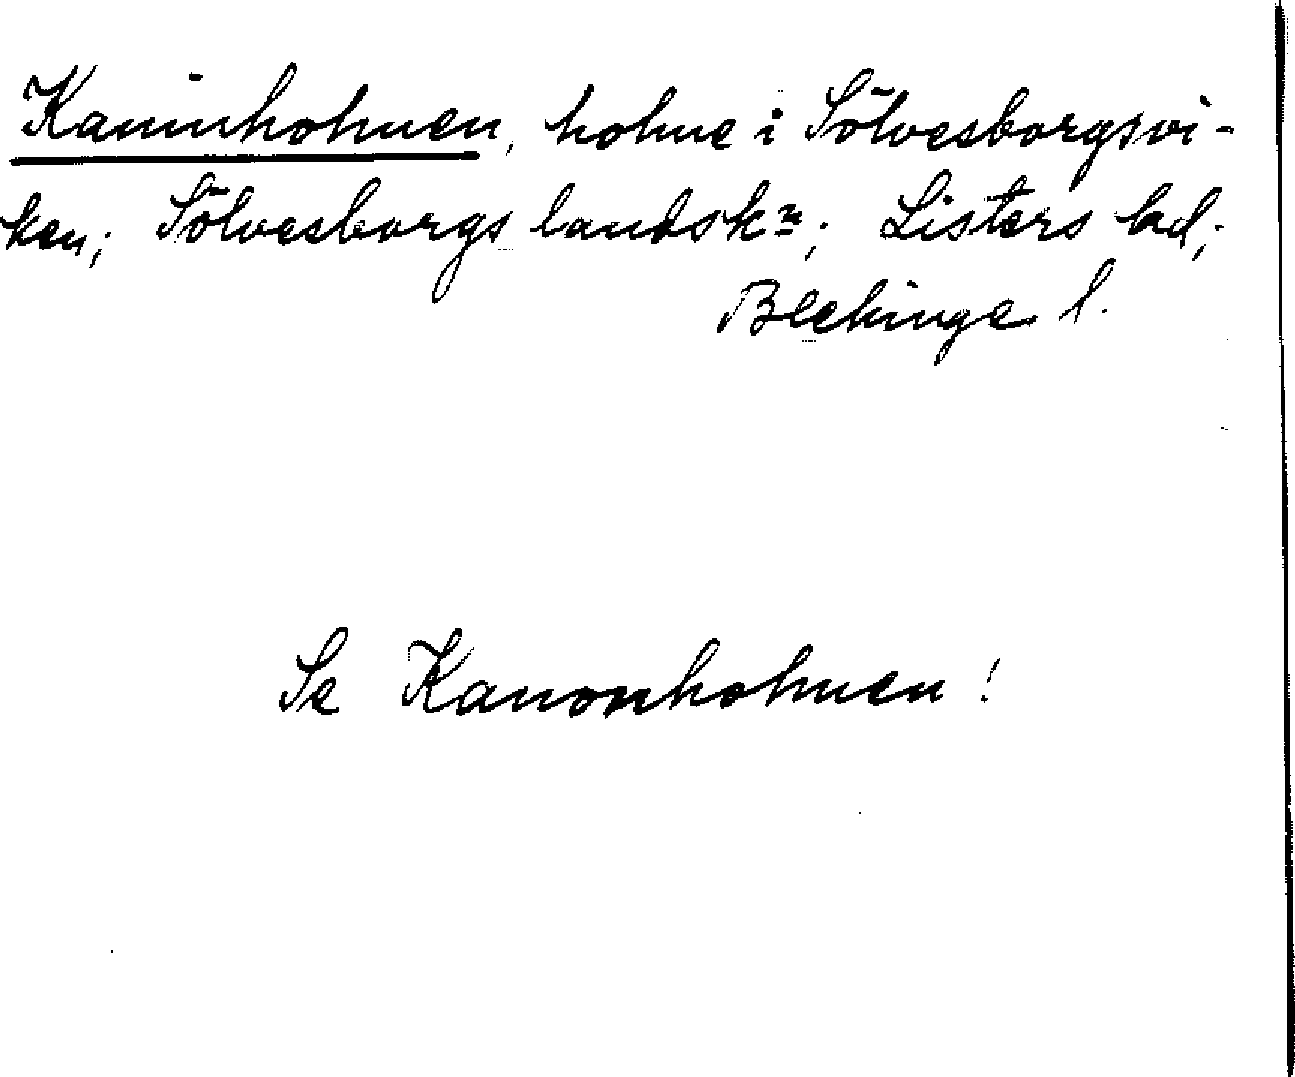 Kaninholmen, holme i Sölvesborgsvi-
ken; Sölvesborgs landskn; Listers hd;
Blekinge l.
Se Kanonholmen!